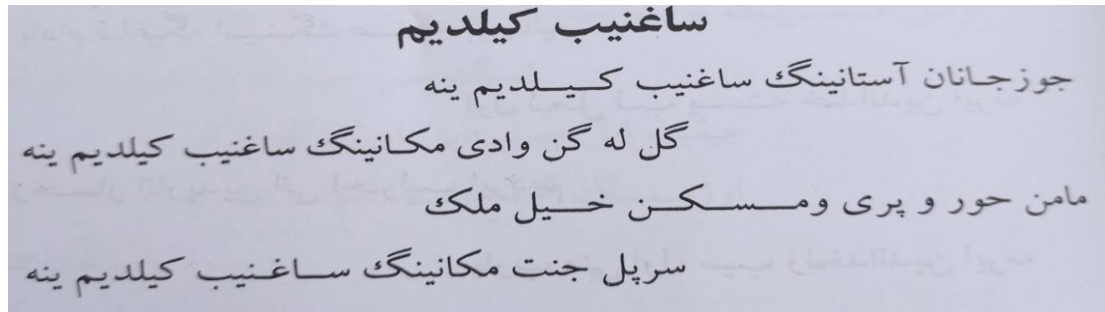 ساغنیب کیلدیم
جوزجانان آستانینگ ساغنیب کیلدیم ینه
گل له گن وادی مکانینگ ساغنیب کیلدیم ینه
مامن حور و پری ومسکن خیل ملک
سرپل جنت مکانینگ ساغنیب کیلدیم ینه